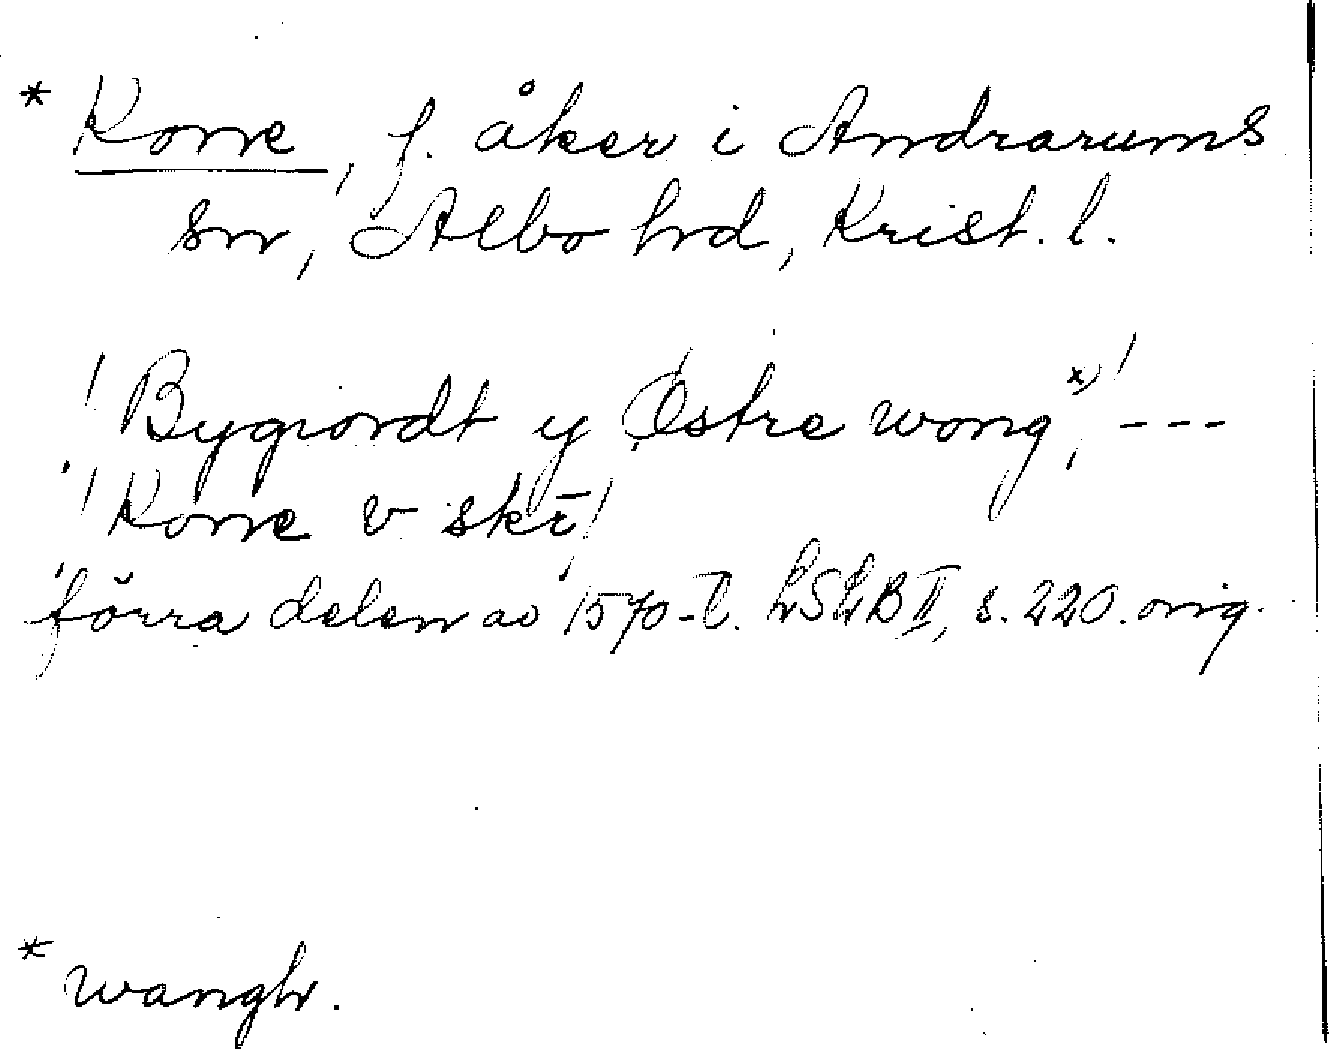 * Korre, f. åker i Andrarums
sn, Albo hd, Krist. l.
! Bygiordt y Østre wong *), ! ---
! Korre v skē !
förra delen av 1570-t. LSLB II, s. 220. orig.
* wangh.